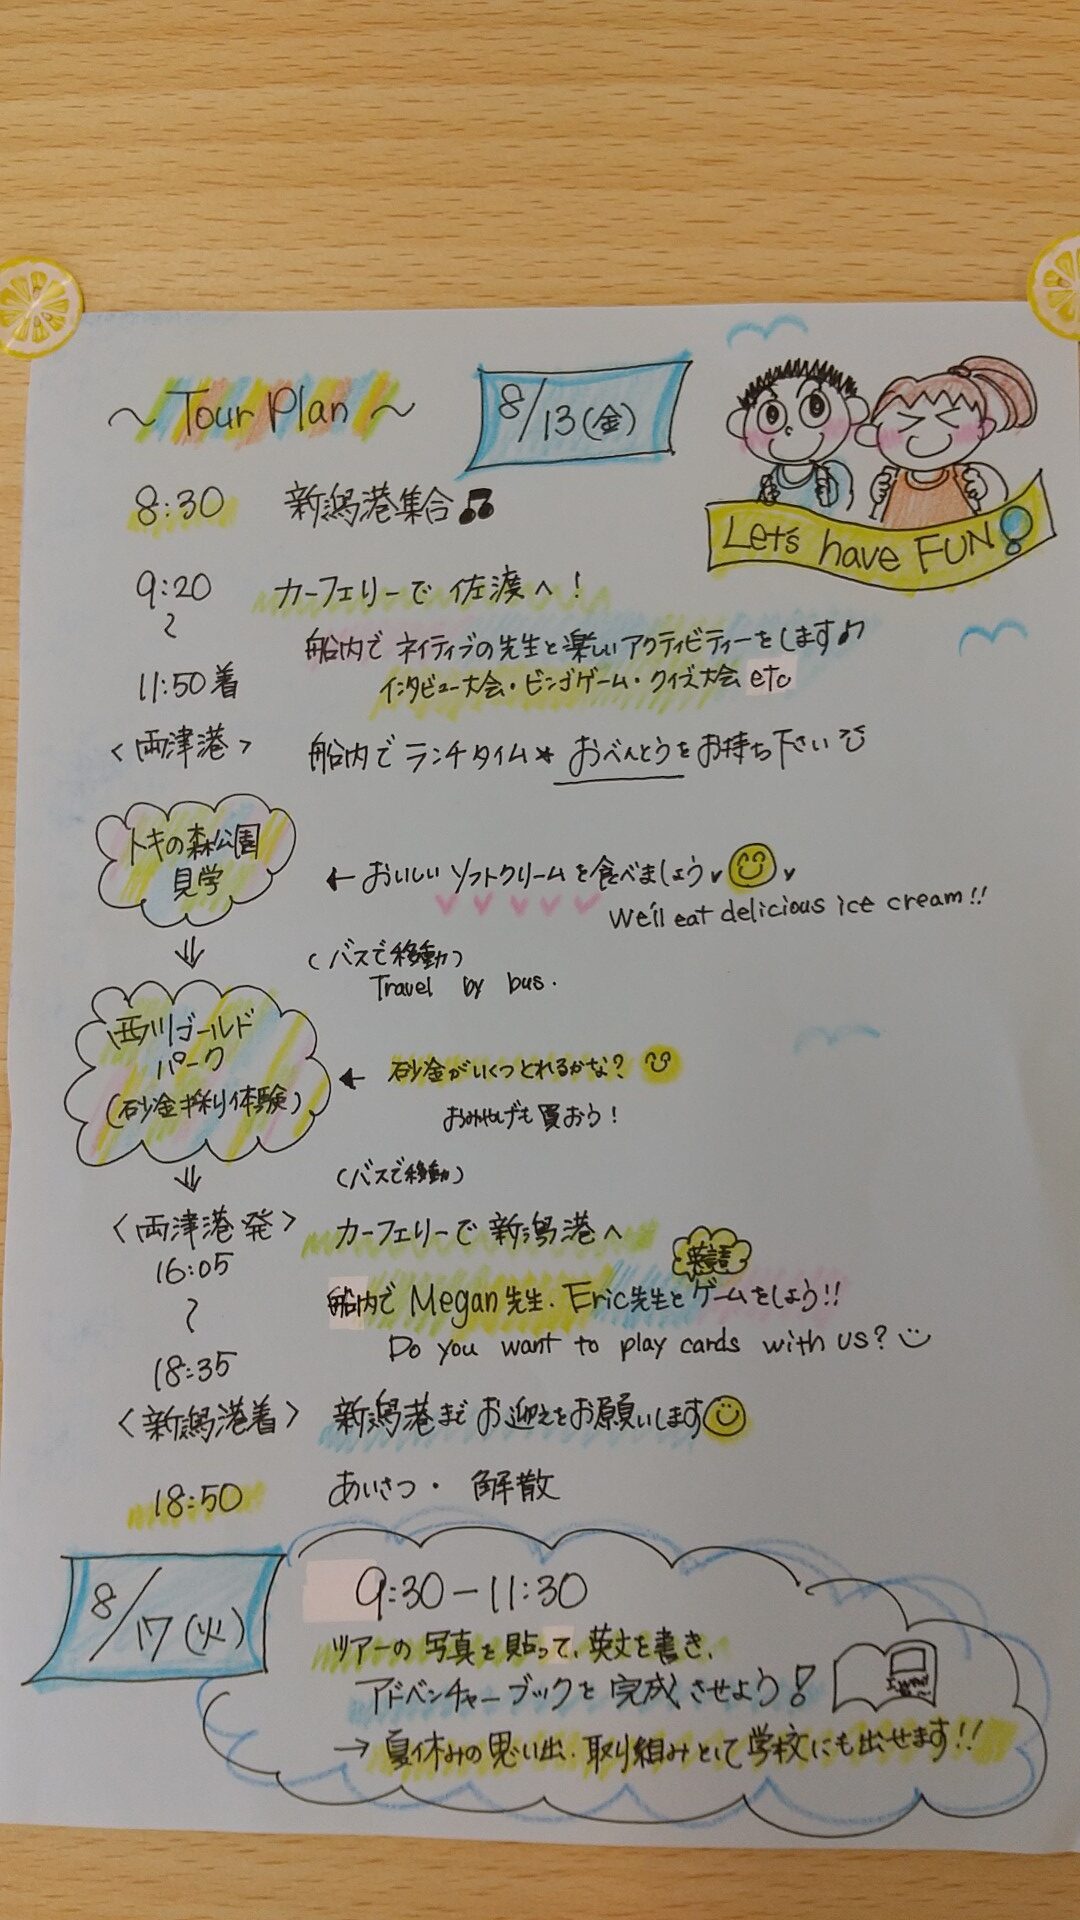 ～ Tour Plan ～
8/13(金)
Let's have FUN!
8:30 新潟港集合♫
9:20 カーフェリーで佐渡へ!
〜 船内でネイティブの先生と楽しいアクティビティーをします♪
インタビュー大会・ビンゴゲーム・クイズ大会 etc
11:50着
<両津港> 船内でランチタイム* おべんとうをお持ち下さい
トキの森公園
見学
← おいしいソフトクリームを食べましょう
We'll eat delicious ice cream!!
⇓ (バスで移動)
Travel by bus.
西川ゴールド
パーク
(砂金採り体験)
← 砂金がいくつとれるかな?
おみやげも買おう!
⇓ (バスで移動)
<両津港発> カーフェリーで新潟港へ
16:05
〜
英語
船内で Megan先生、Eric先生とゲームをしよう!!
Do you want to play cards with us?
18:35
<新潟港着> 新潟港までお迎えをお願いします
18:50 あいさつ・解散
8/17(火)
9:30−11:30
ツアーの写真を貼って、英文を書き、
アドベンチャーブックを完成させよう!
→ 夏休みの思い出、取り組みとして学校にも出せます!!